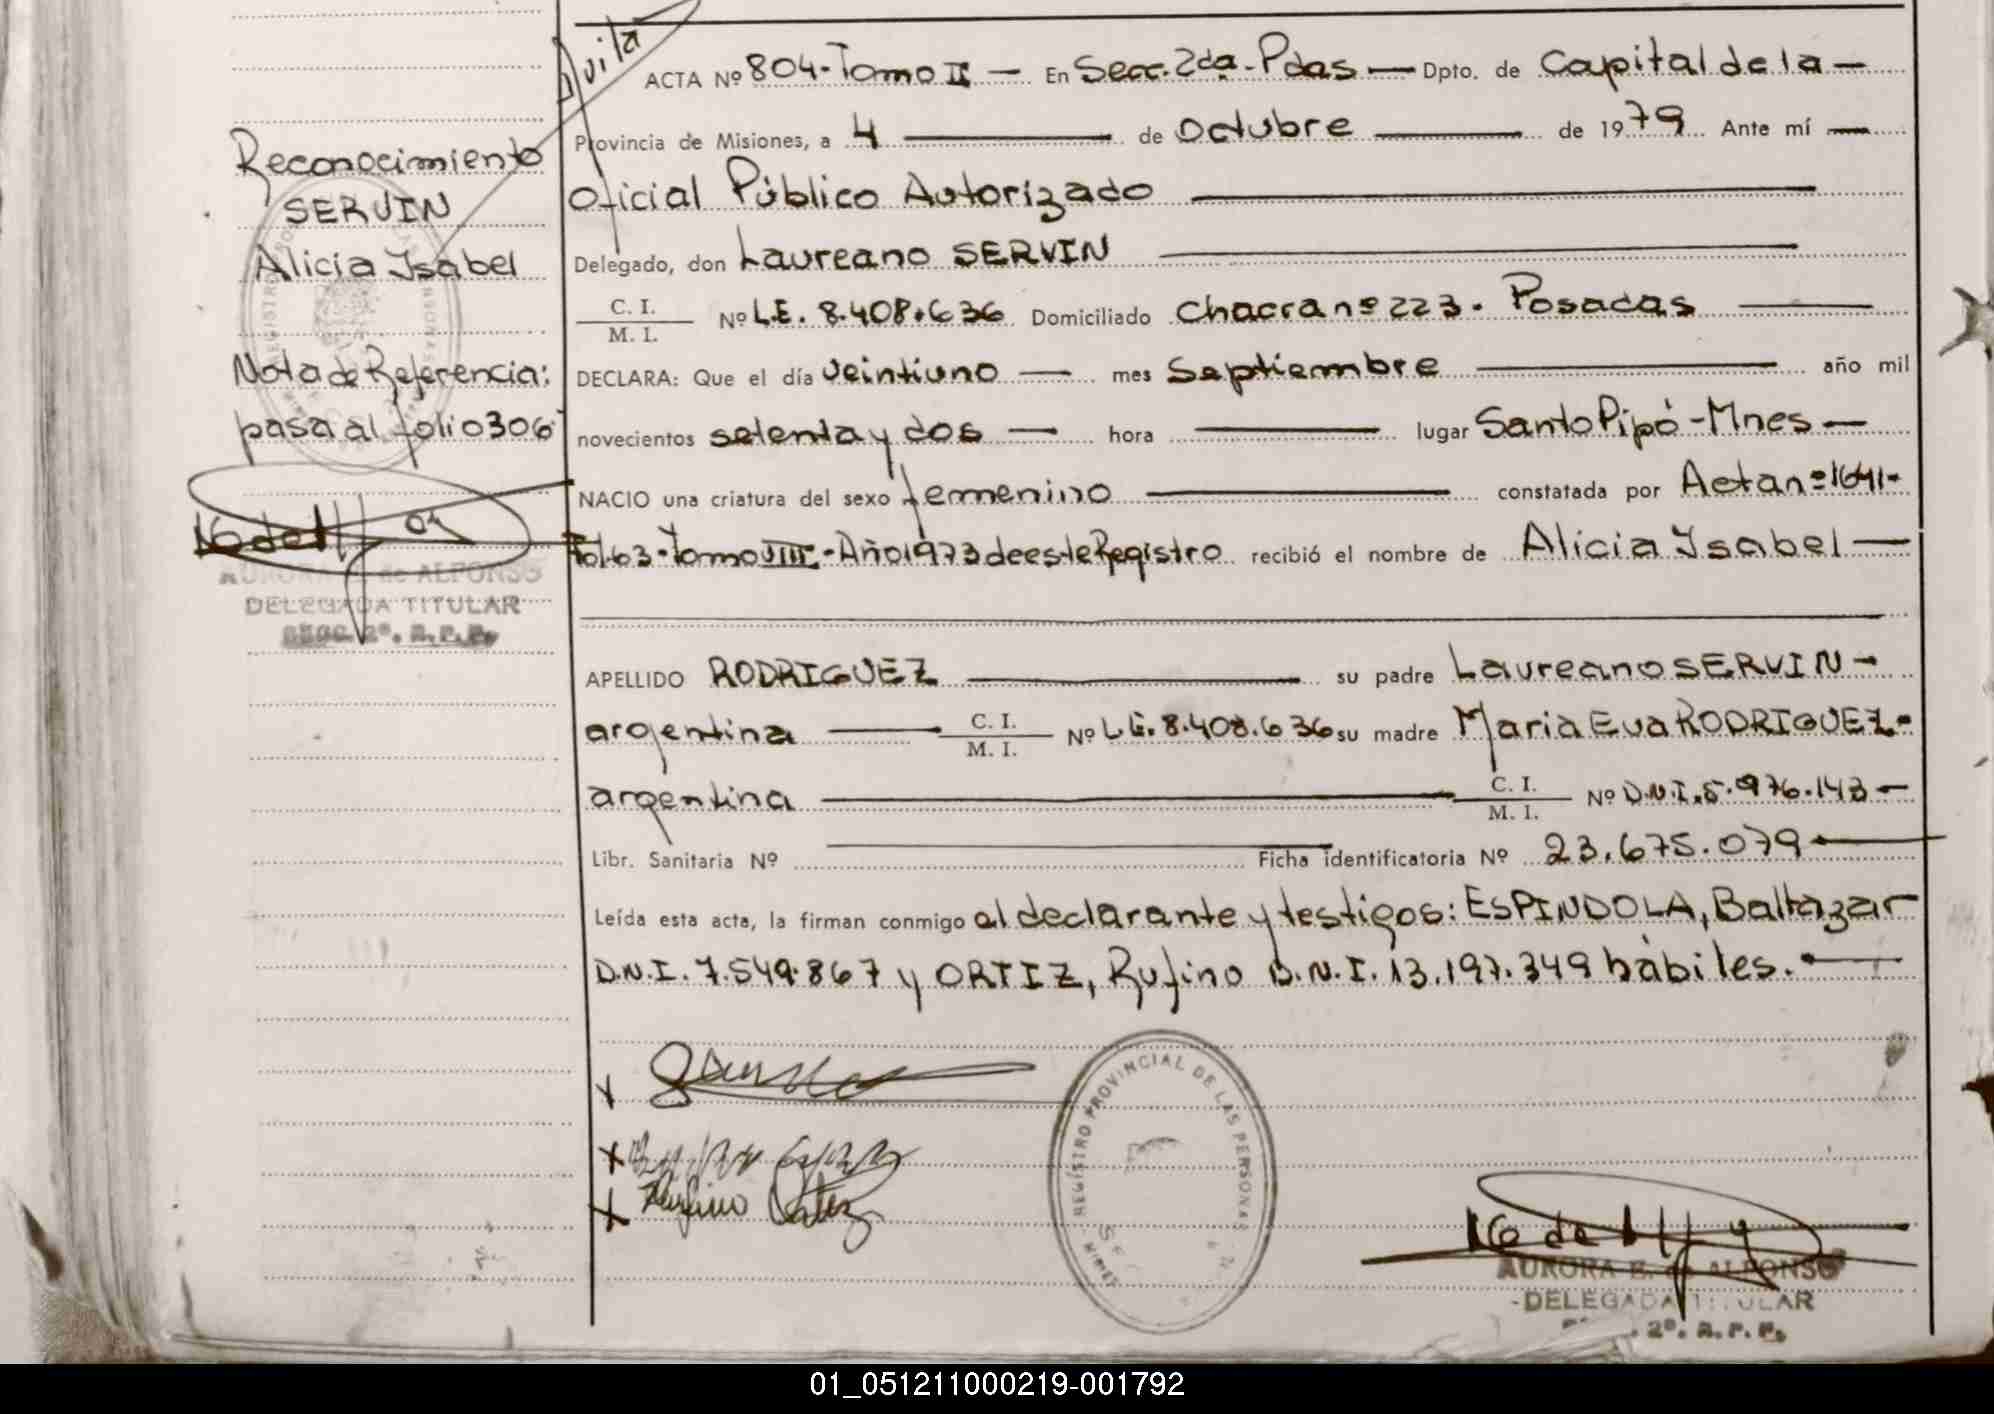 ACTA Nº 804-Tomo II — En Secc. 2da. Pdas — Dpto. de Capital de la —
Provincia de Misiones, a 4 — de Octubre — de 1979 Ante mí —
Oficial Público Autorizado —
Delegado, don Laureano SERVIN —
C. I.
M. I. Nº L.E. 8.408.636 Domiciliado Chacra nº 223. Posadas —
DECLARA: Que el día veintiuno — mes Septiembre — año mil
novecientos setenta y dos — hora — lugar Santo Pipó - Mnes —
NACIO una criatura del sexo femenino — constatada por Acta nº 1641-
Fol 63-Tomo VIII-Año 1973 de este Registro recibió el nombre de Alicia Ysabel —
APELLIDO RODRIGUEZ — su padre Laureano SERVIN —
argentina — C. I. M. I. Nº L.E. 8.408.636 su madre Maria Eva RODRIGUEZ-
argentina — C. I. M. I. Nº D.N.I. 5.976.143 —
Libr. Sanitaria Nº — Ficha identificatoria Nº 23.675.079 —
Leída esta acta, la firman conmigo el declarante y testigos: ESPINDOLA, Baltazar
D.N.I. 7.549.867 y ORTIZ, Rufino D.N.I. 13.197.349 hábiles. —
Rufino Ortiz
REGISTRO PROVINCIAL DE LAS PERSONAS
AURORA E. de ALFONSO
DELEGADA TITULAR
2º. R. P. P.
Reconocimiento
SERVIN
Alicia Ysabel
Nota de Referencia:
pasa al folio 306
AURORA E. de ALFONSO
DELEGADA TITULAR
SECC. 2º. R. P. P.
01_051211000219-001792